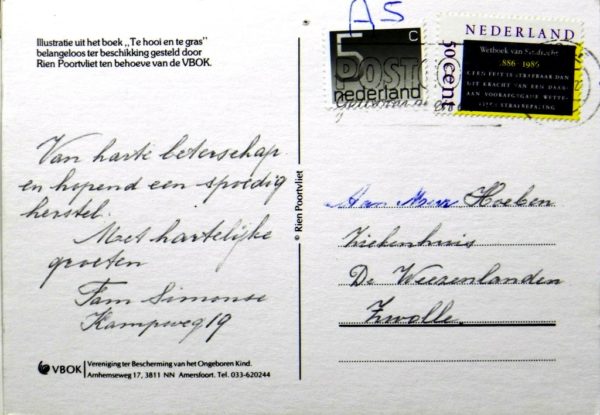 Illustratie uit het boek „Te hooi en te gras"
belangeloos ter beschikking gesteld door
Rien Poortvliet ten behoeve van de VBOK.
A5
5 C
POST
nederland
NEDERLAND
50 cent
Wetboek van Strafrecht
1886 - 1986
GEEN FEIT IS STRAFBAAR DAN
UIT KRACHT VAN EEN DAAR-
AAN VOORAFGEGANE WETTE-
LIJKE STRAFBEPALING
Van harte beterschap
en hopend een spoedig
herstel.
Met hartelijke
groeten
Fam Simonse
Kampweg 19
© Rien Poortvliet
Aan Mevr Hoeben
Ziekenhuis
De Weezenlanden
Zwolle.
VBOK
Vereniging ter Bescherming van het Ongeboren Kind.
Arnhemseweg 17, 3811 NN Amersfoort. Tel. 033-620244